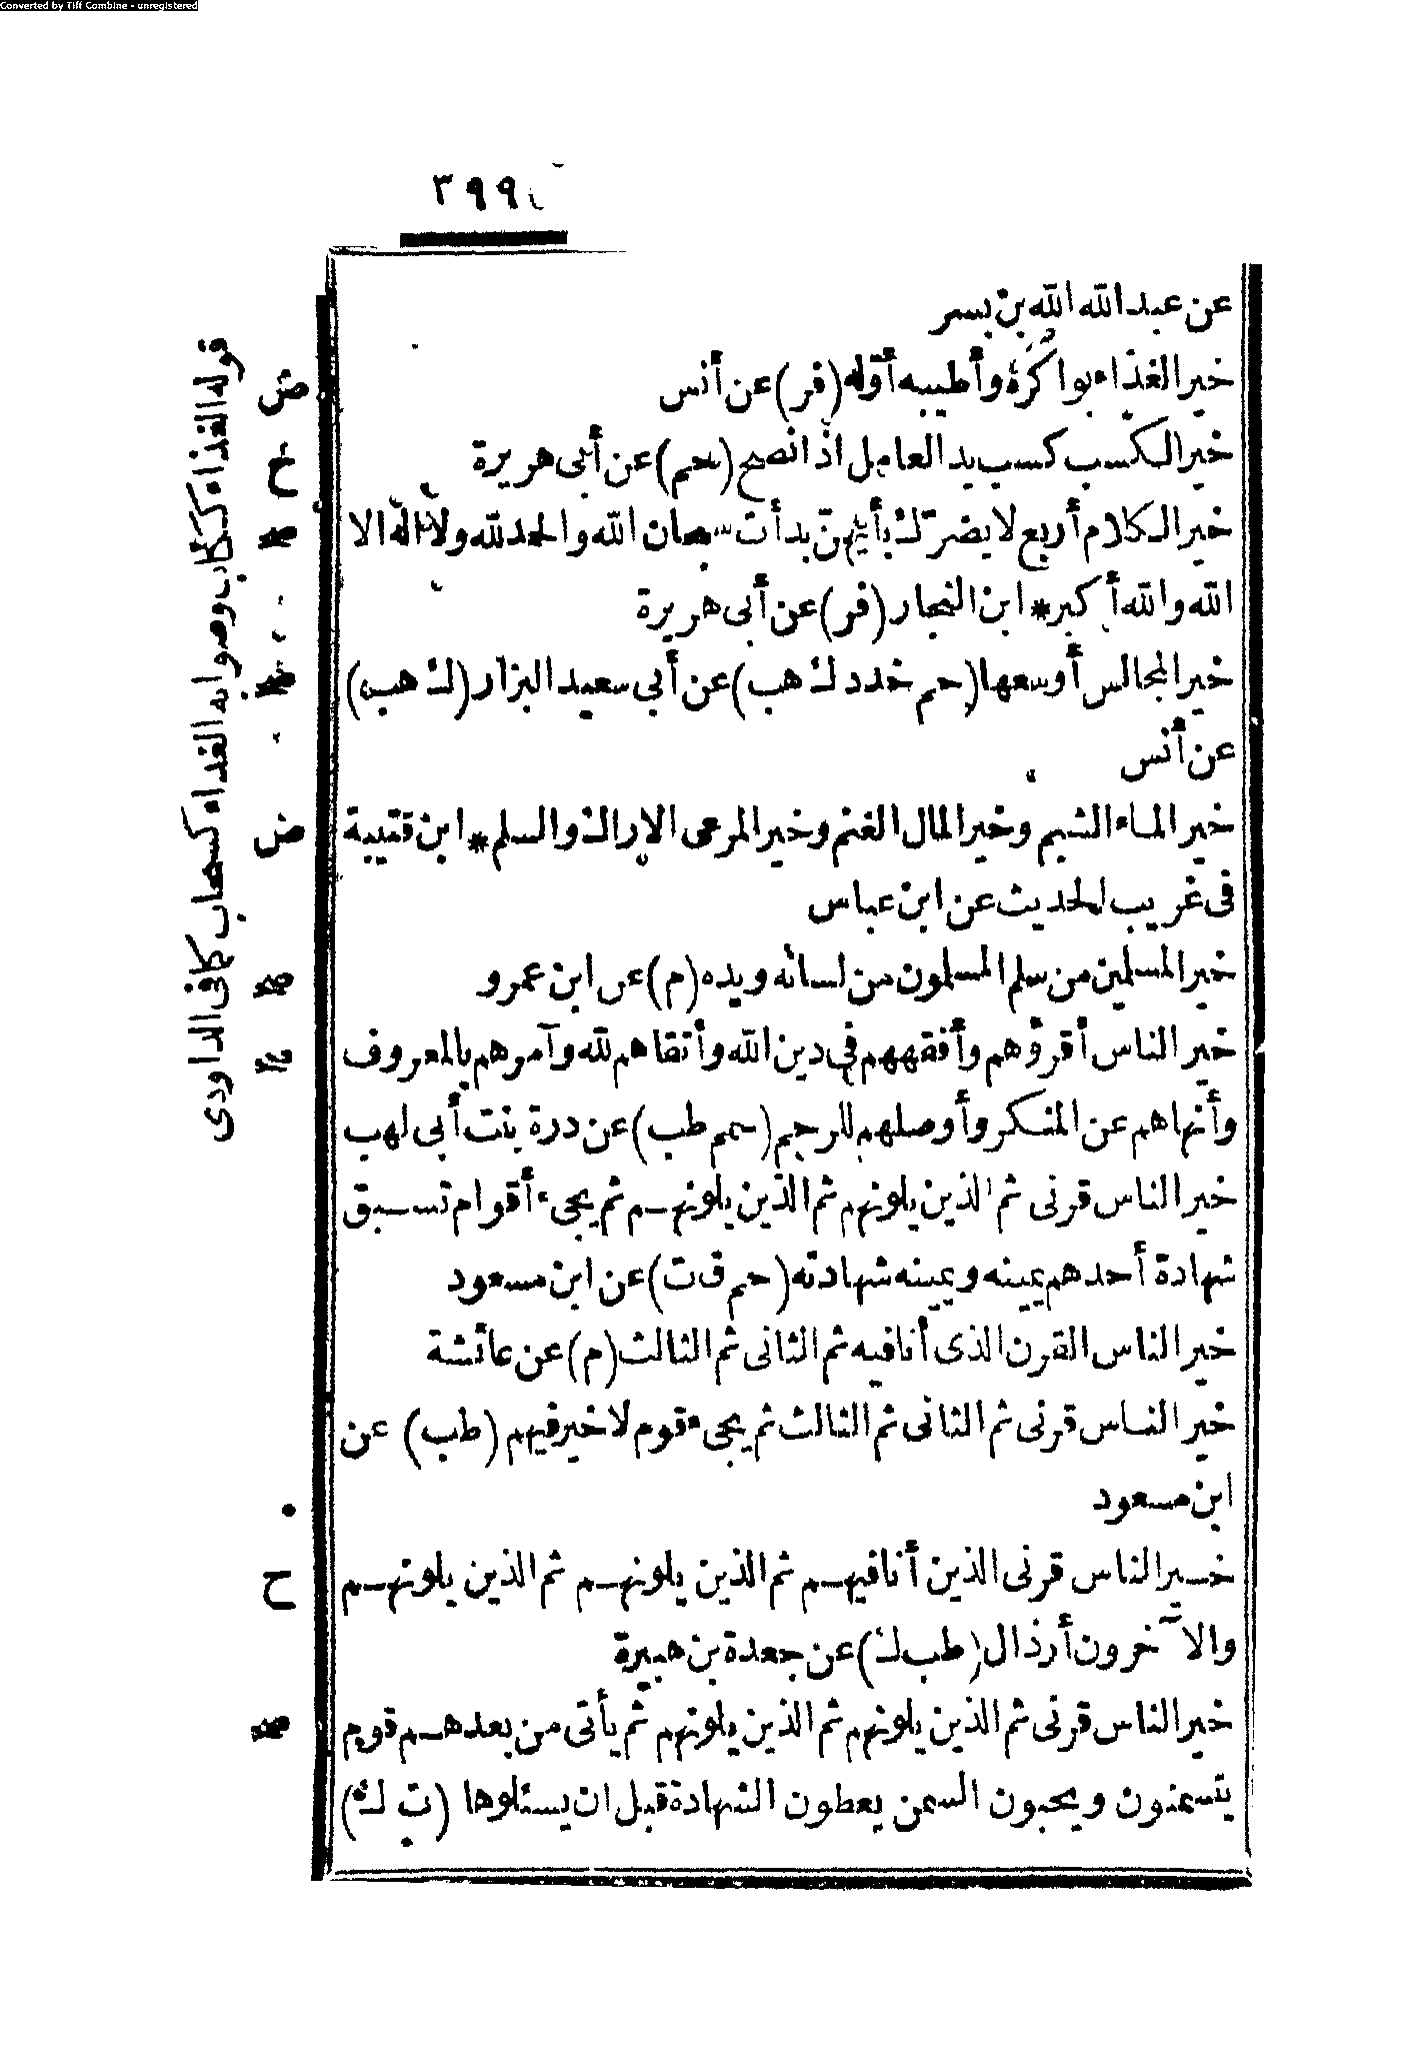 Converted by Tiff Combine - unregistered
٣٩٩
عن عبد الله الله بن بسر
خير الغذاء بواكره وأطيبه أوّله (فر) عن أنس
خير الكسب كسب يد العامل اذا نصح (حم) عن أبى هريرة
خير الكلام أربع لا يضرّك بأيهنّ بدأت سبحان الله والحمد لله ولا اله الا
الله والله أكبر * ابن النجار (فر) عن أبى هريرة
خير المجالس أوسعها (حم خدد ك هب) عن أبي سعيد البزار (ك هب)
عن أنس
خير الماء الشبم وخير المال الغنم وخير المرعى الاراك والسلم * ابن قتيبة
فى غريب الحديث عن ابن عباس
خير المسلمين من سلم المسلمون من لسانه ويده (م) عن ابن عمرو
خير الناس أقرؤهم وأفقههم في دين الله وأتقاهم لله وآمرهم بالمعروف
وأنهاهم عن المنكر وأوصلهم للرحم (حم طب) عن درة بنت أبي لهب
خير الناس قرنى ثم الذين يلونهم ثم الذين يلونهم ثم يجىء أقوام تسبق
شهادة أحدهم يمينه ويمينه شهادته (حم ق ت) عن ابن مسعود
خير الناس القرن الذى أنا فيه ثم الثانى ثم الثالث (م) عن عائشة
خير الناس قرنى ثم الثانى ثم الثالث ثم يجىء قوم لا خير فيهم (طب) عن
ابن مسعود
خير الناس قرنى الذين أنا فيهم ثم الذين يلونهم ثم الذين يلونهم
والآخرون أرذال (طب ك) عن جعدة بن هبيرة
خير الناس قرنى ثم الذين يلونهم ثم الذين يلونهم ثم يأتى من بعدهم قوم
يتسمنون ويحبون السمن يعطون الشهادة قبل ان يسئلوها (ت ك)
ض
ح
صح
صح
ض
صح
ح
صح
قوله الغذاء ككتاب وصوابه الغداء كسحاب كما فى الداودى